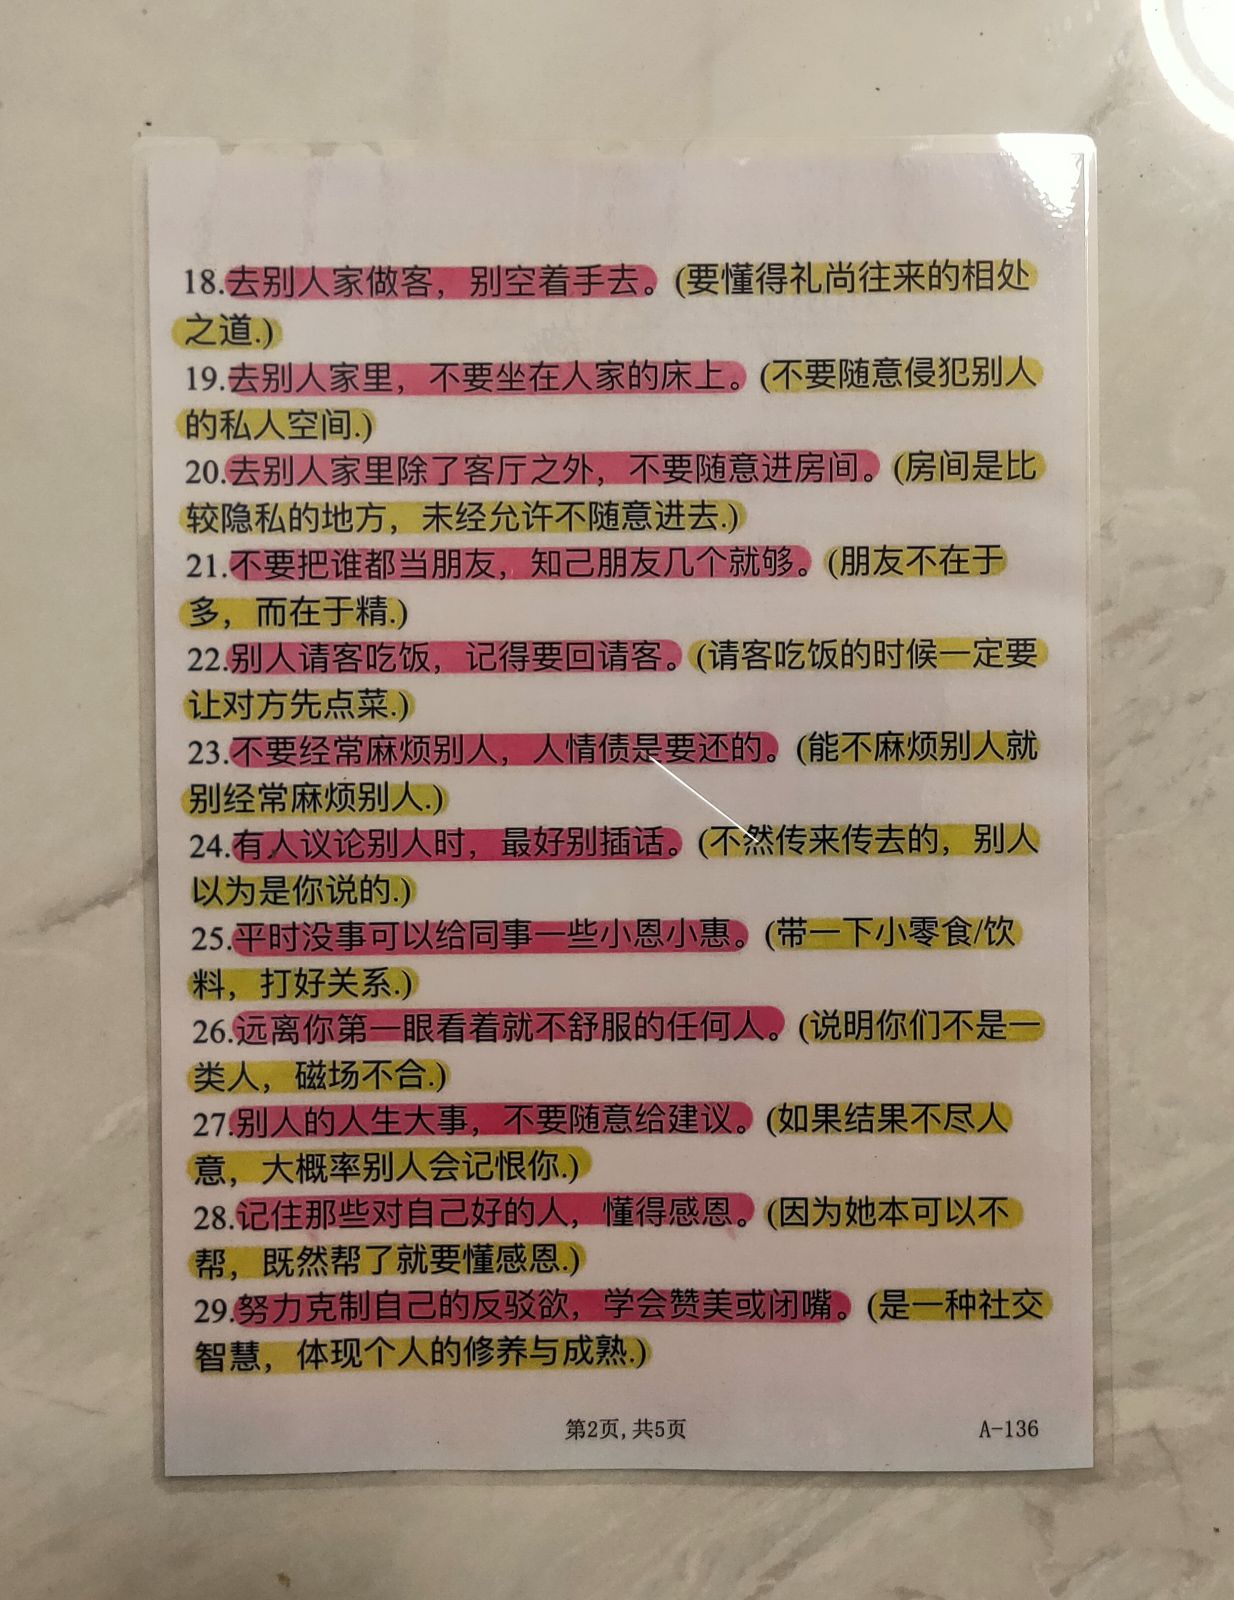 18.去别人家做客，别空着手去。(要懂得礼尚往来的相处
之道.)
19.去别人家里，不要坐在人家的床上。(不要随意侵犯别人
的私人空间.)
20.去别人家里除了客厅之外，不要随意进房间。(房间是比
较隐私的地方，未经允许不随意进去.)
21.不要把谁都当朋友，知己朋友几个就够。(朋友不在于
多，而在于精.)
22.别人请客吃饭，记得要回请客。(请客吃饭的时候一定要
让对方先点菜.)
23.不要经常麻烦别人，人情债是要还的。(能不麻烦别人就
别经常麻烦别人.)
24.有人议论别人时，最好别插话。(不然传来传去的，别人
以为是你说的.)
25.平时没事可以给同事一些小恩小惠。(带一下小零食/饮
料，打好关系.)
26.远离你第一眼看着就不舒服的任何人。(说明你们不是一
类人，磁场不合.)
27.别人的人生大事，不要随意给建议。(如果结果不尽人
意，大概率别人会记恨你.)
28.记住那些对自己好的人，懂得感恩。(因为她本可以不
帮，既然帮了就要懂感恩.)
29.努力克制自己的反驳欲，学会赞美或闭嘴。(是一种社交
智慧，体现个人的修养与成熟.)
第2页,共5页
A-136